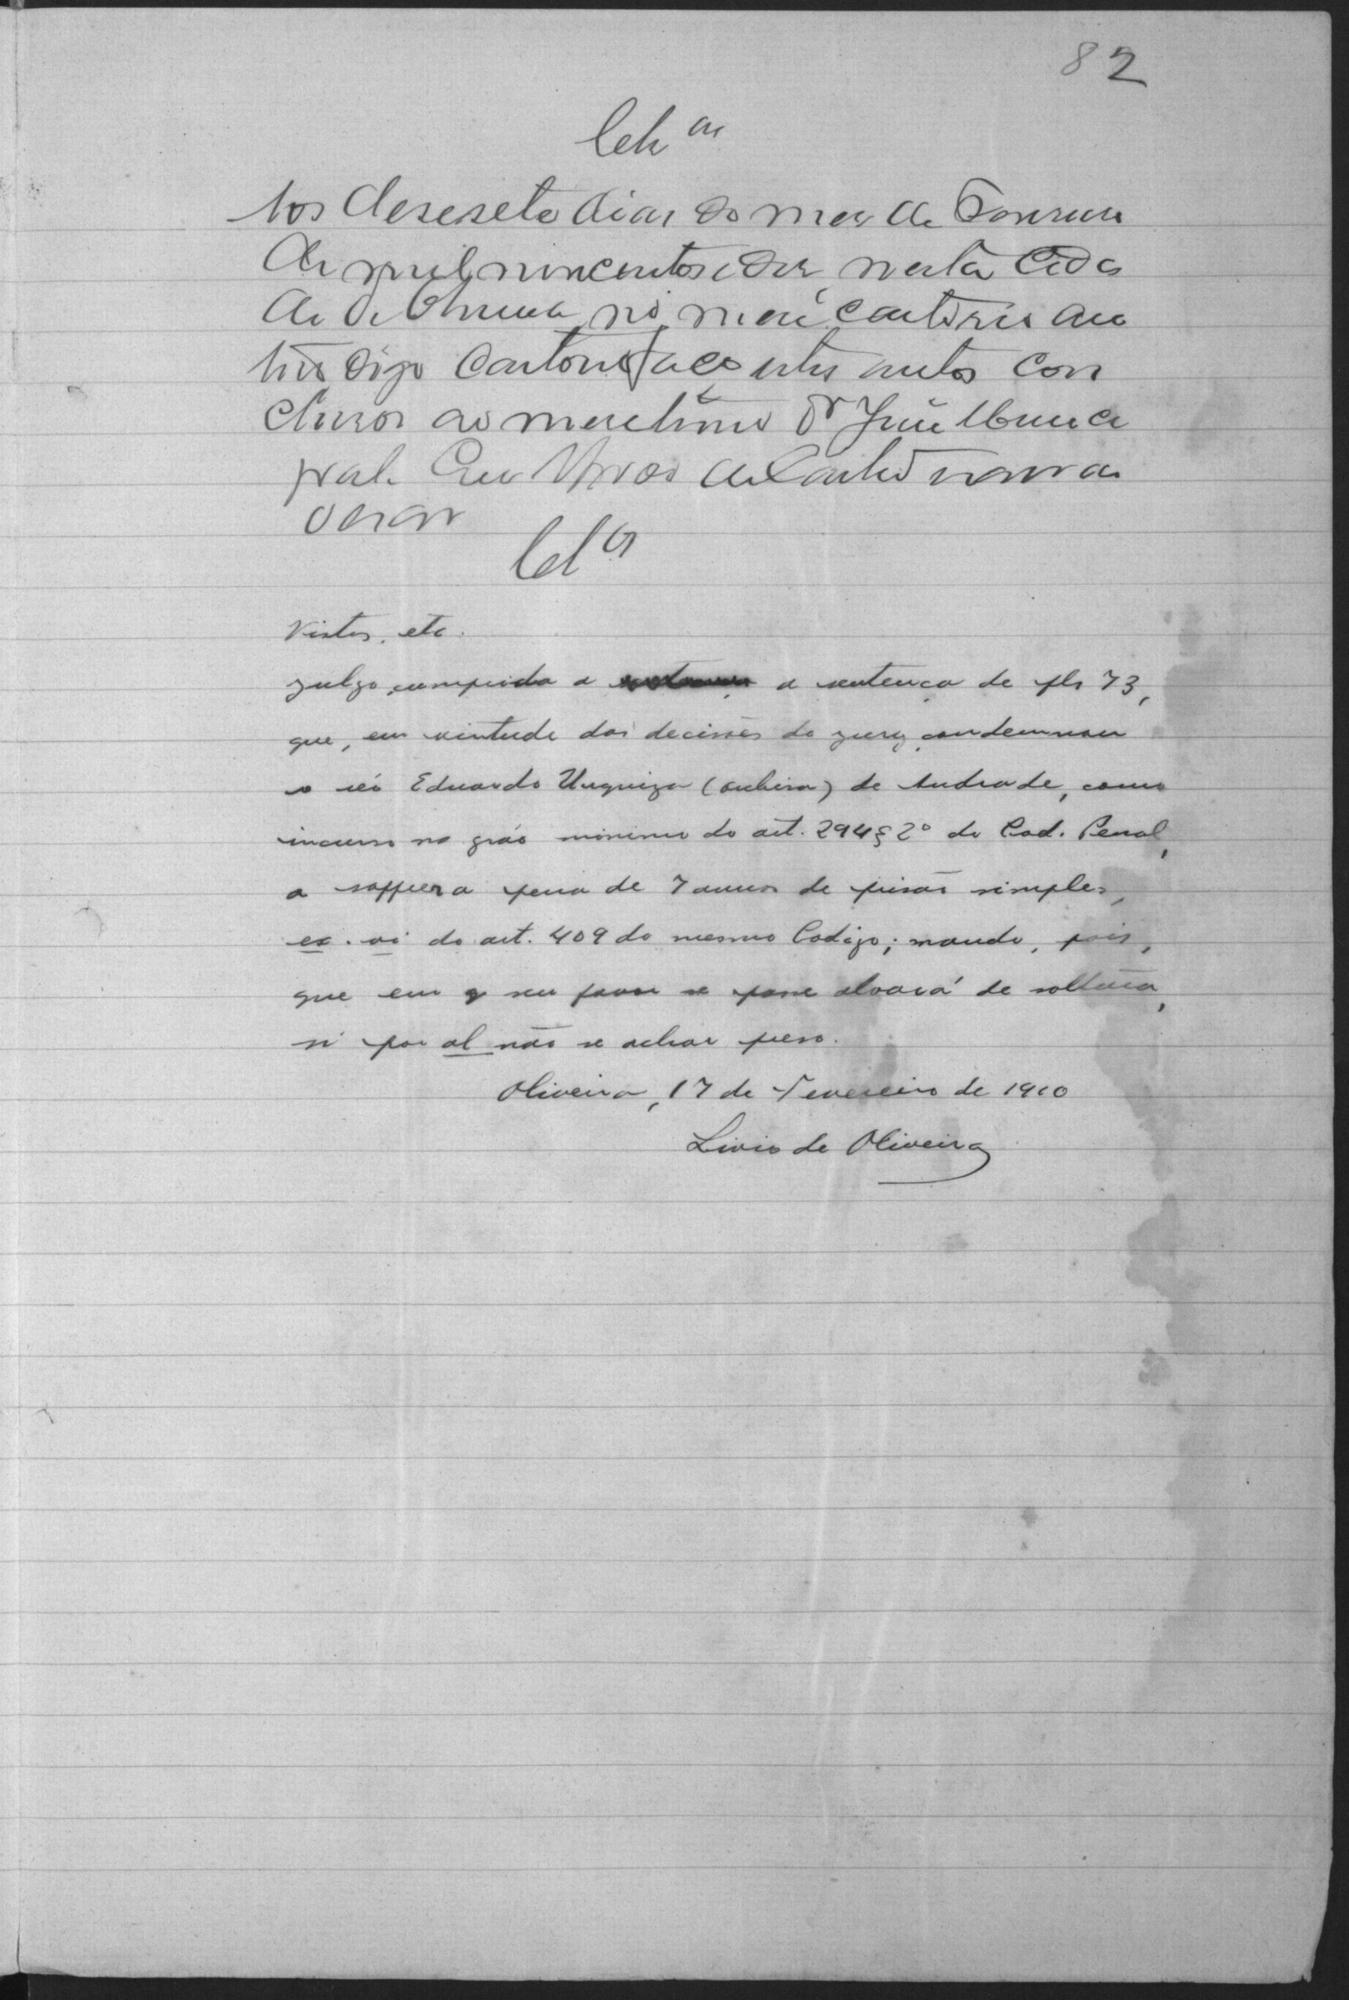 82
Clz.am
Aos deseseto dias do mes de Fevereiro
de mil nincentos e dez, nesta Cida
de de Oliveira, no meu cartorio au
digo Cartorio faço estes autos con
clusos ao meretissimo Dr Juiz Munici
pal. Eu de Castro
Clos
Vistos, etc.
Julgo cumprida a a sentença de fls 73,
que, em virtude das decisões do jury, condemnou
o réo Eduardo Urquiza (Oubira) de Andrade, como
incurso no gráo minimo do art. 294 § 2º do Cod. Penal,
a soffrer a pena de 7 annos de prisão simples,
ex-vi do art. 409 do mesmo Codigo; mando, pois,
que em seu favor se passe alvará de soltura,
si por al não se achar preso.
Oliveira, 17 de Fevereiro de 1910
Livio de Oliveira